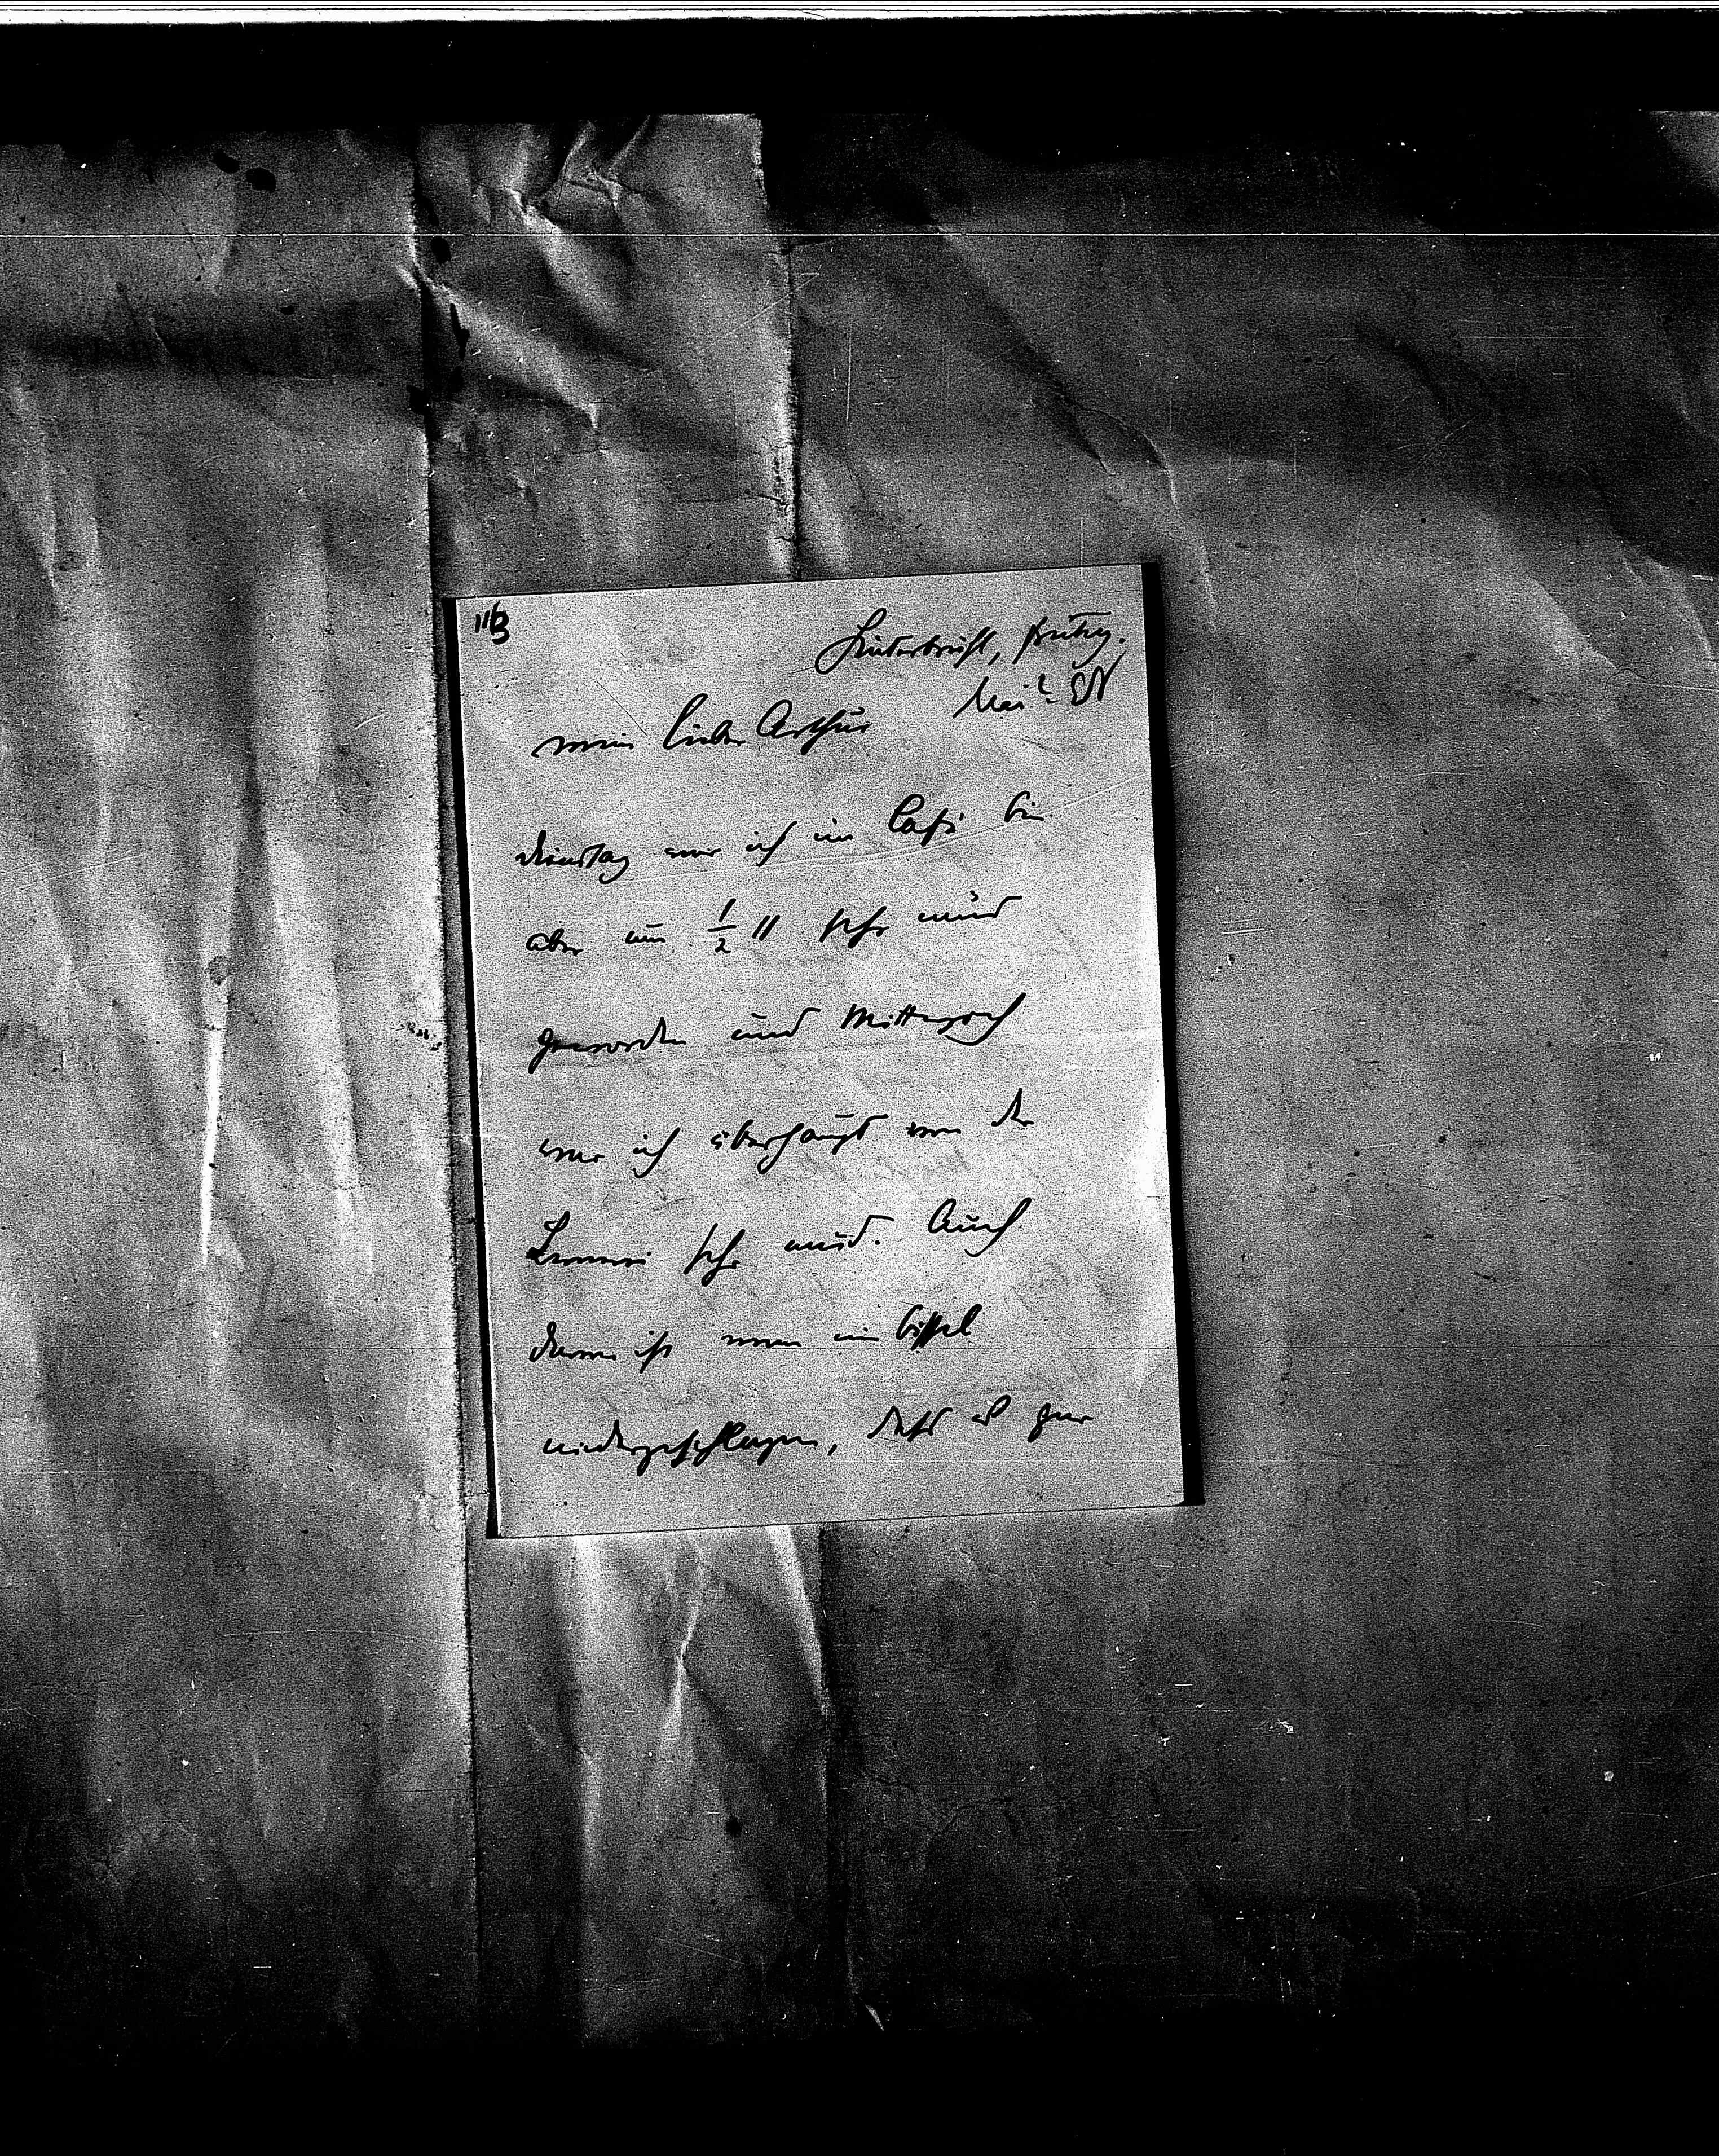 116
Hinterbrühl, Freitag.
mein lieber Arthur
Dienstag war ich im Café bin
aber um ½ 11 sehr müd
geworden und Mittwoch
war ich überhaupt von der
sehr müd. Auch
dann ist man ein bissel
niedergeschlagen, dass es gar